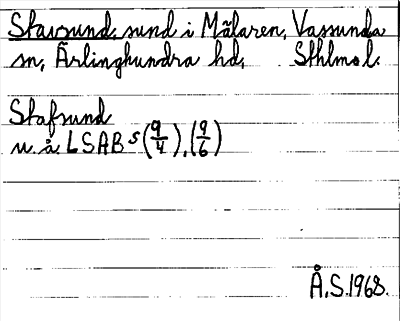 Stavsund, sund i Mälaren, Vassunda
sn, Ärlinghundra hd, Sthlms l.
Stafsund
u. å. LSAB s (9/4), (9/6)
Å. S. 1968.